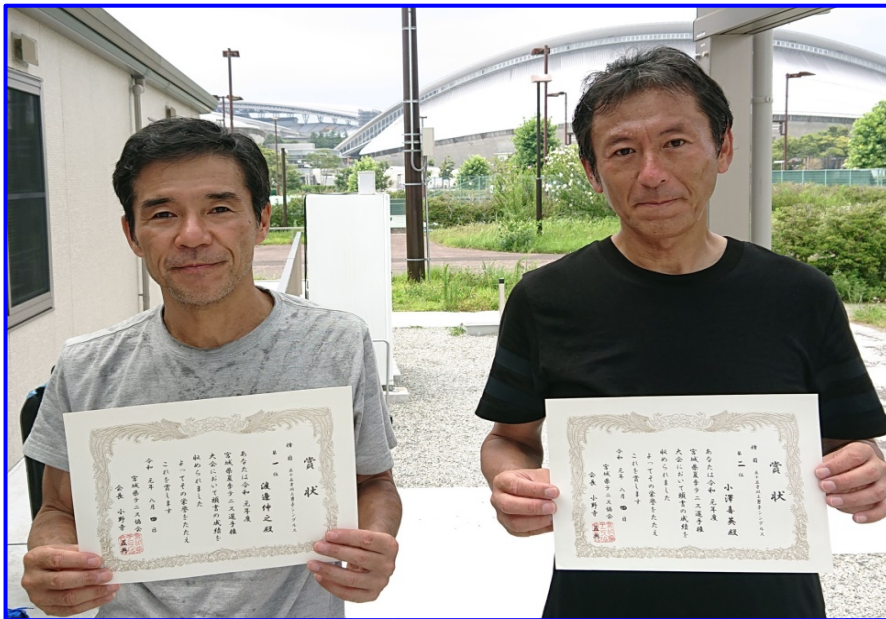 賞状
種目 五十五才以上男子シングルス
第一位
渡邊伸之殿
あなたは令和 元年度
宮城県夏季テニス選手権
大会において頭書の成績を
収められました
よってその栄誉をたたえ
これを賞します
令和 元年 八月 四日
宮城県テニス協会
会長 小野寺
賞状
種目 五十五才以上男子シングルス
第二位
小澤喜英殿
あなたは令和 元年度
宮城県夏季テニス選手権
大会において頭書の成績を
収められました
よってその栄誉をたたえ
これを賞します
令和 元年 八月 四日
宮城県テニス協会
会長 小野寺